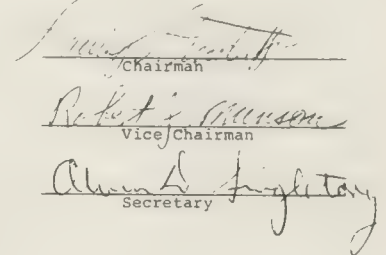 Chairman
Robert E. Munson
Vice Chairman
Alvin D. Singletary
Secretary